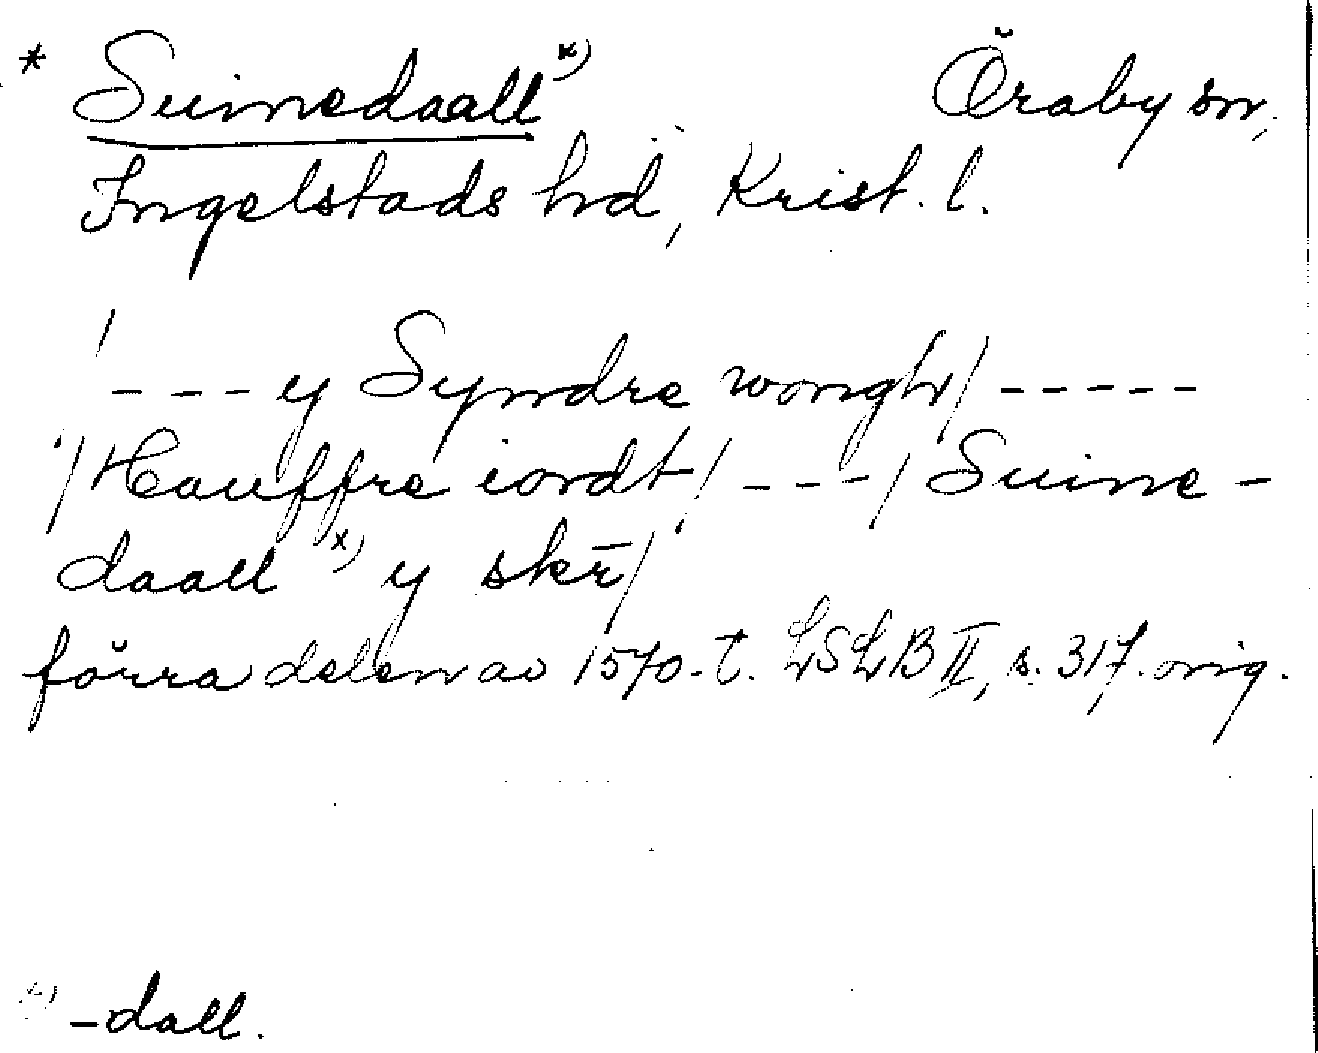 * Suinedaall x) Öraby sn,
Ingelstads hd, Krist. l.
/ - - - y Syndre wongh / - - - - -
/ Hauffre iordt / - - - / Suine -
daall x) y skr̄ /
förra delen av 1570-t. LSLB II, s. 317. orig.
x) -dall.